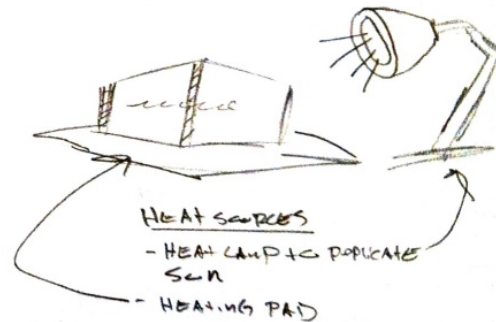 HEAT SOURCES
- HEAT LAMP TO DUPLICATE
SUN
- HEATING PAD